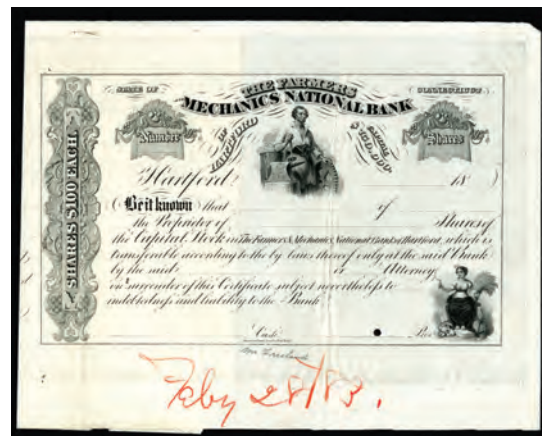 STATE OF
CONNECTICUT
THE FARMERS
MECHANICS NATIONAL BANK
OF HARTFORD
Number
Shares
SHARES $100 EACH.
Hartford 18
Be it known that of
the Proprietor of Shares of
the Capital Stock in The Farmers & Mechanics National Bank of Hartford, which is
transferable according to the by-laws thereof only at the said Bank
by the said or Attorney
on surrender of this Certificate subject nevertheless to
indebtedness and liability to the Bank
Cash.
Feby 28/83.